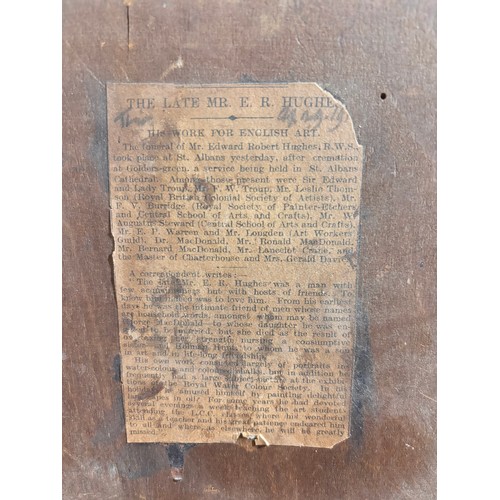 THE LATE MR. E. R. HUGHE
HIS WORK FOR ENGLISH ART.
The funeral of Mr. Edward Robert Hughes, R.W.S.
took place at St. Albans yesterday, after cremation
at Golders-green, a service being held in St. Albans
Cathedral. Among those present were Sir Edward
and Lady Troup, Mr. F. W. Troup, Mr. Leslie Thom
son (Royal British Colonial Society of Artists), Mr.
F. V. Burridge (Royal Society of Painter-Etchers
and Central School of Arts and Crafts), Mr. W.
Augustus Steward (Central School of Arts and Crafts)
Mr. E. P. Warren and Mr. Longden (Art Workers'
Guild), Dr. MacDonald, Mr. Ronald MacDonald,
Mr. Bernard MacDonald, Mr. Lancelot Crane, and
the Master of Charterhouse and Mrs. Gerald Davies
A correspondent writes:—
"The late Mr. E. R. Hughes was a man with
few acquaintances but with hosts of friends. To
know him indeed was to love him. From his earliest
days he was the intimate friend of men whose names
are household words, amongst whom may be named
George MacDonald—to whose daughter he was en-
to be married, but she died as the result of
her strength nursing a consumptive
Holman Hunt, to whom he was a son
in art and in life-long friendship.
His own work consisted largely of portraits in
watercolour and coloured chalks, but in addition he
frequently had a large subject picture at the exhibi
tions of the Royal Water Colour Society. In his
holidays he amused himself by painting delightful
landscapes in oil. For some years he had devoted
several evenings a week teaching the art students
attending the L.C.C. classes, where his wonderful
skill as a teacher and his great patience endeared him
to all and where, as elsewhere, he will be greatly
missed."